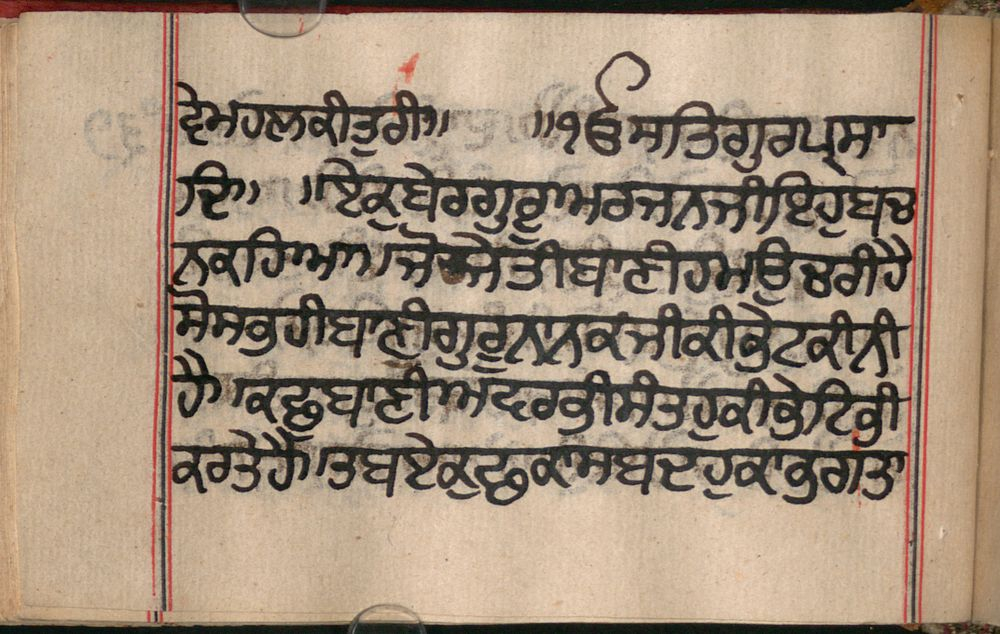 ਵੇਮਹਲਕੀਤੁਰੀ॥ ॥੧ੳਸਤਿਗੁਰਪ੍ਰਸਾ
ਦਿ॥ ॥ਏਕੁਬੇਰਗੁਰੂਅਰਜਨਜੀਇਹੁਬਚ
ਨਕਹਿਆ॥ਜੋਜੇਤੀਬਾਣੀਹਮਉਚਰੀਹੈ
ਸੋਸਭੁਹੀਬਾਣੀਗੁਰੂਨਾਨਕਜੀਕੀਭੇਟਕੀਨੀ
ਹੈ॥ਕਛੁਬਾਣੀਅਦਰਭੀਸੰਤਹੁਕੀਭੇਟਿਭੀ
ਕਰਤੇਹੈ॥ਤਬਏਕੁਛਕਾਸਬਦਹੁਕਾਭੁਗਤਾ